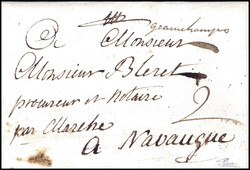 gramchamps
A Monsieur
Monsieur Bleret
procureur et Notaire
par Marche 2
A Navaugue